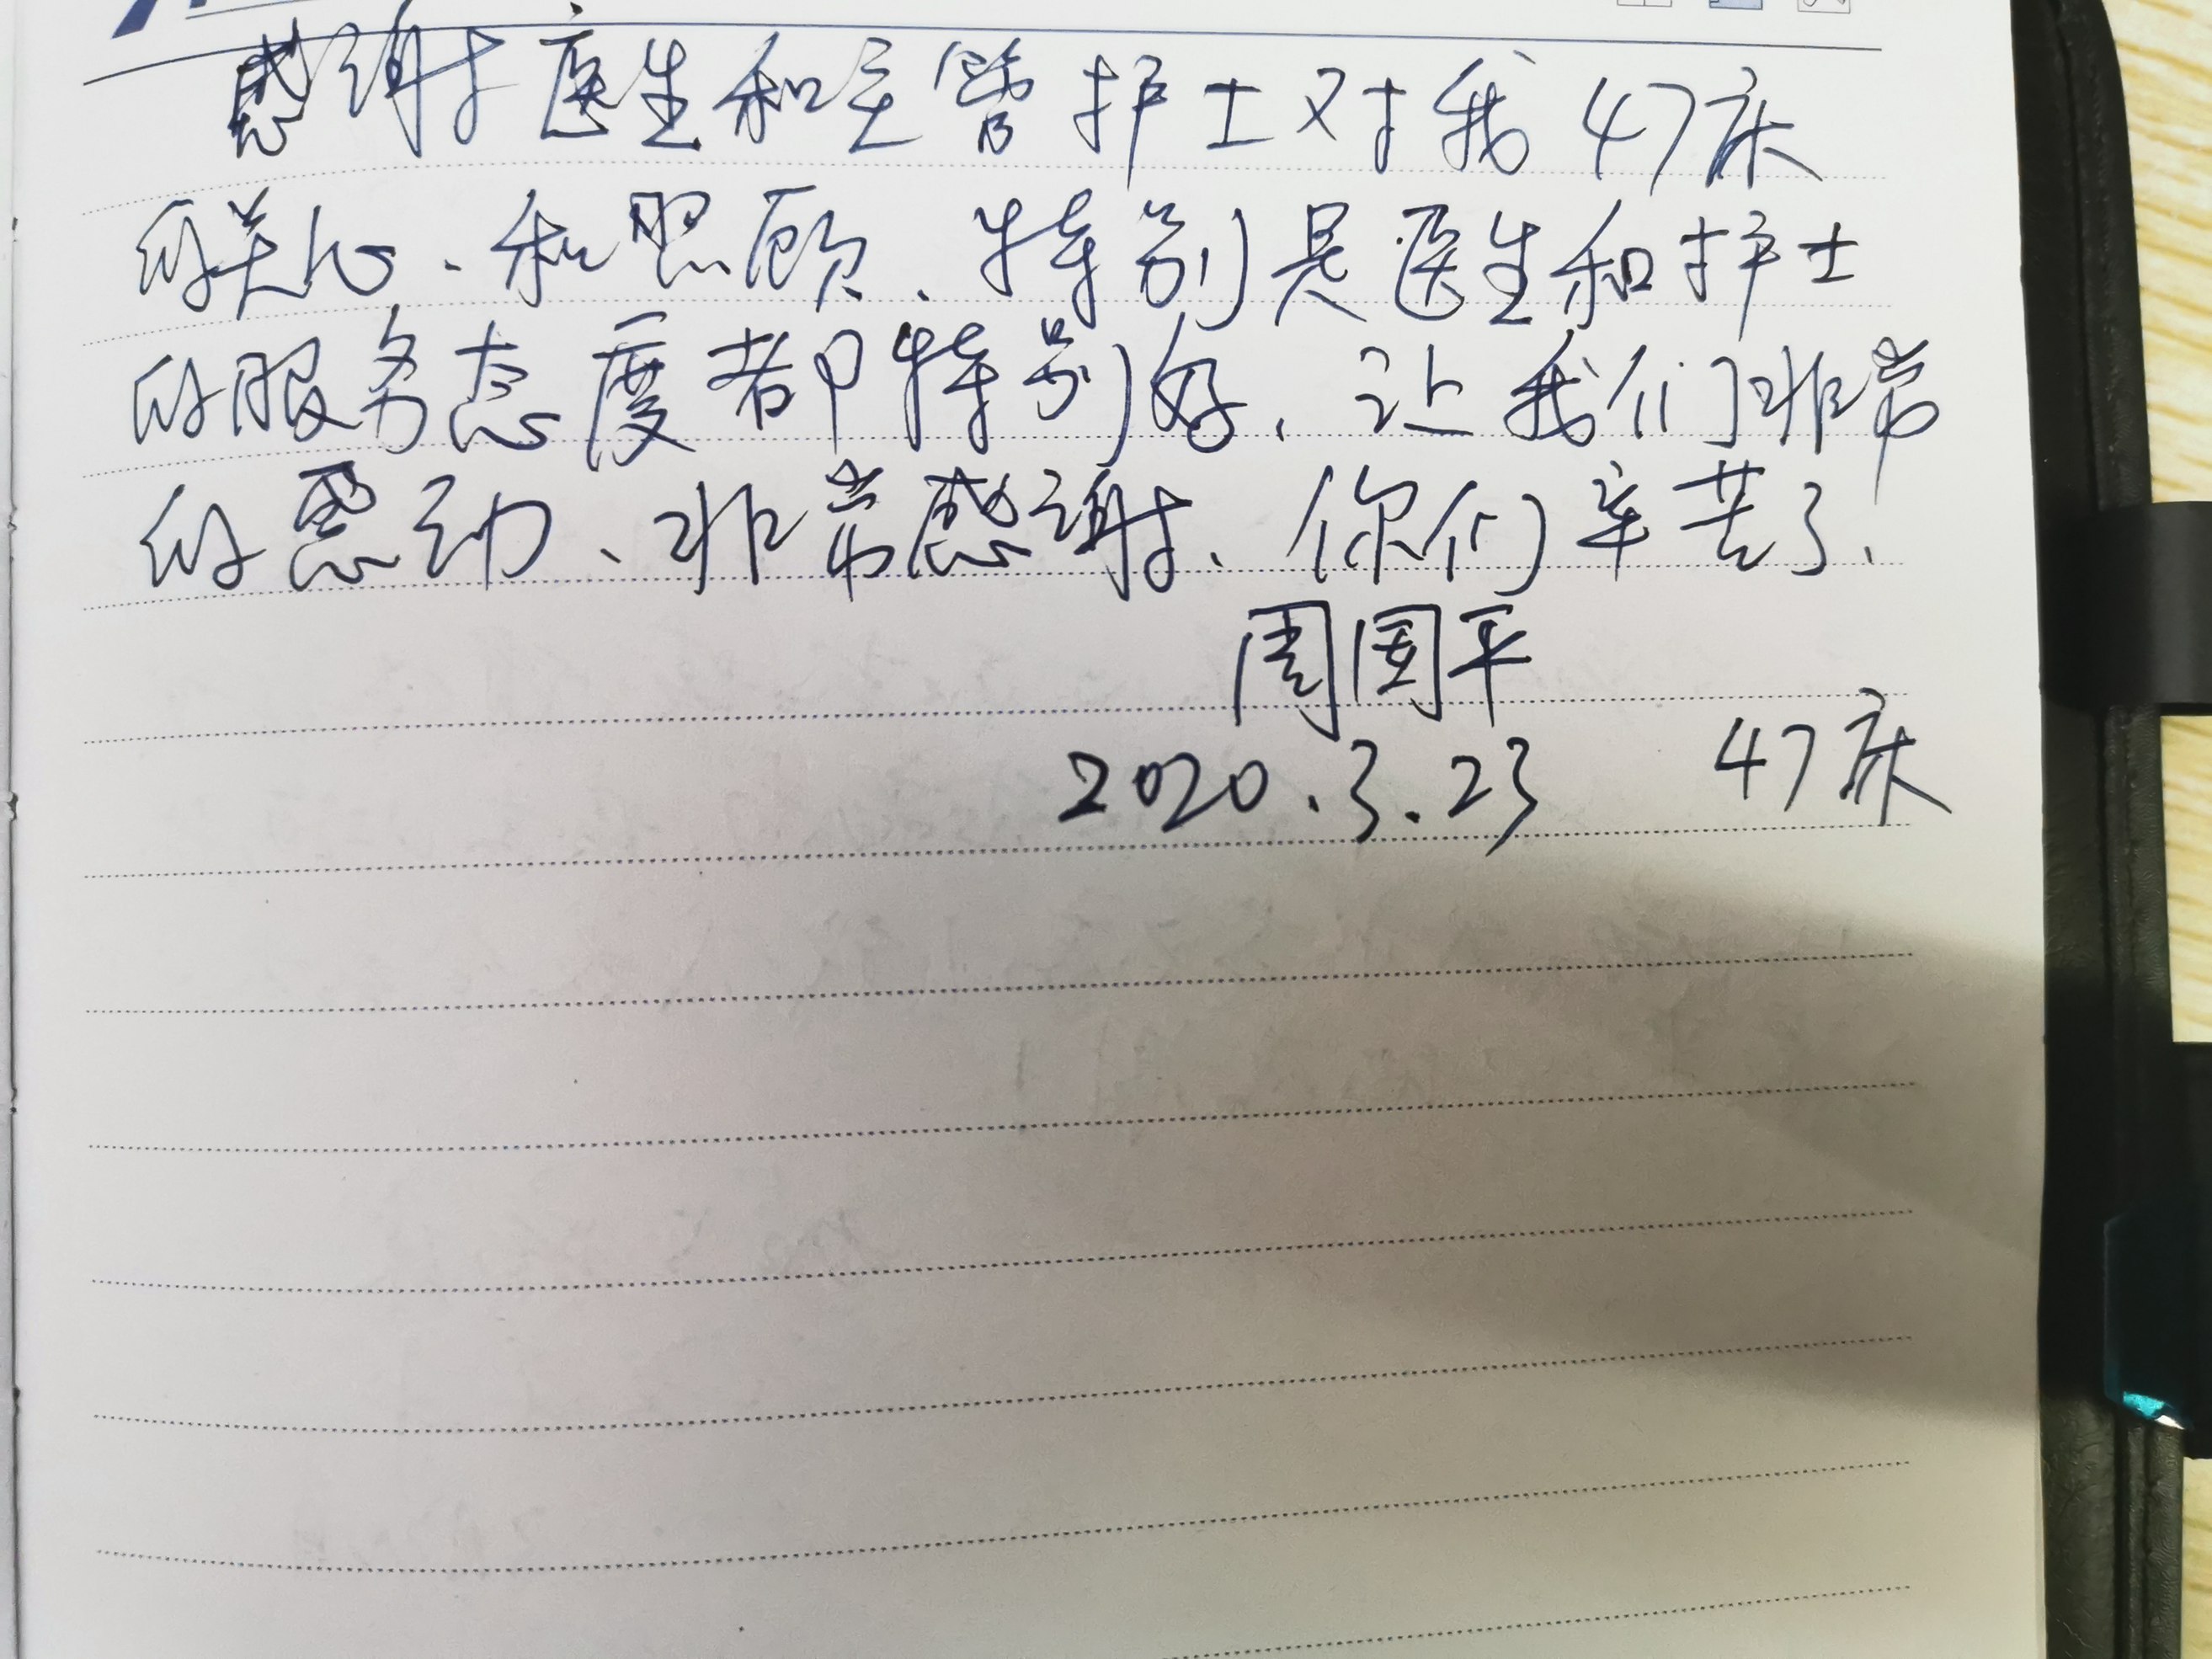 感谢医生和主管护士对我47床
的关心、和照顾、特别是医生和护士
的服务态度都特别好、让我们非常
的感动、非常感谢、你们辛苦了、
周国平
2020.3.23 47床